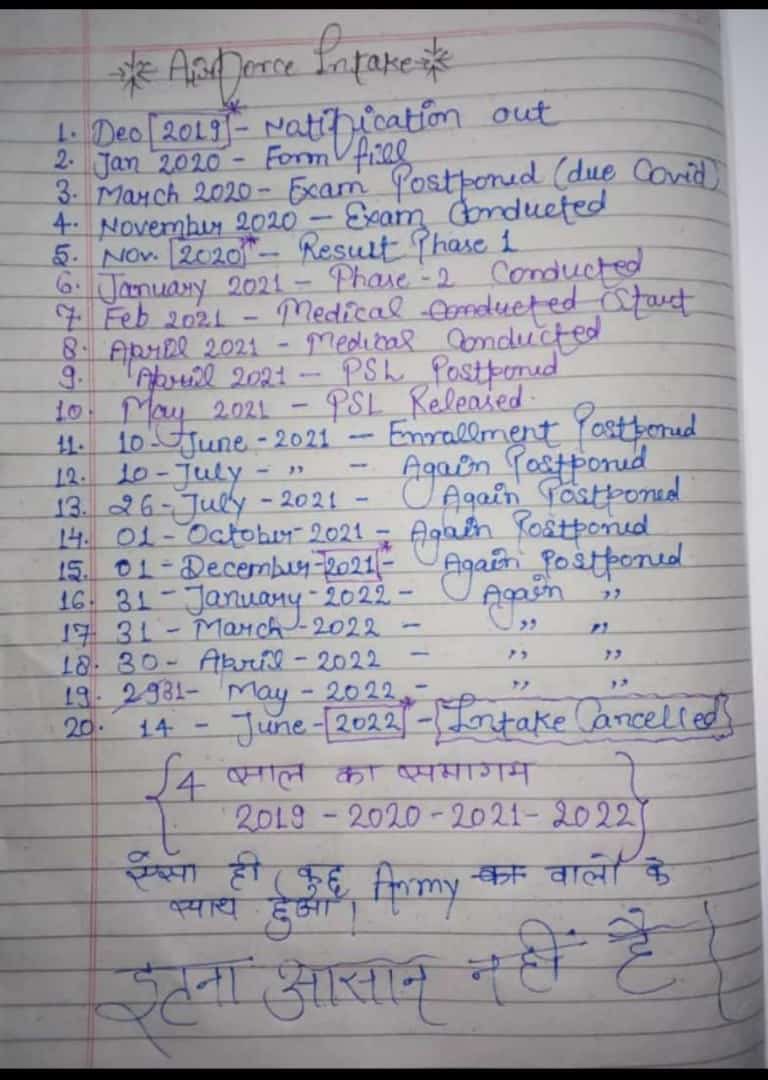 Airforce Intake
1. Dec [2019]* - Notification out
2. Jan 2020 - Form fill
3. March 2020 - Exam Postponed (due Covid)
4. November 2020 - Exam Conducted
5. Nov. [2020]* - Result Phase 1
6. January 2021 - Phase-2 Conducted
7. Feb 2021 - Medical Conducted (Start
8. April 2021 - Medical Conducted
9. April 2021 - PSL Postponed
10. May 2021 - PSL Released.
11. 10-June-2021 - Enrollment Postponed
12. 10-July - ,, - Again Postponed
13. 26-July-2021 - Again Postponed
14. 01-October-2021 - Again Postponed
15. 01-December-[2021]* - Again Postponed
16. 31-January-2022 - Again ,,
17. 31-March-2022 - ,, ,,
18. 30-April-2022 - ,, ,,
19. 31-May-2022 - ,, ,,
20. 14-June-[2022]* - [Intake Cancelled]
{4 साल का समागम
2019-2020-2021-2022}
ऐसा ही कुछ Army वालों के
साथ हुआ।
इतना आसान नहीं है